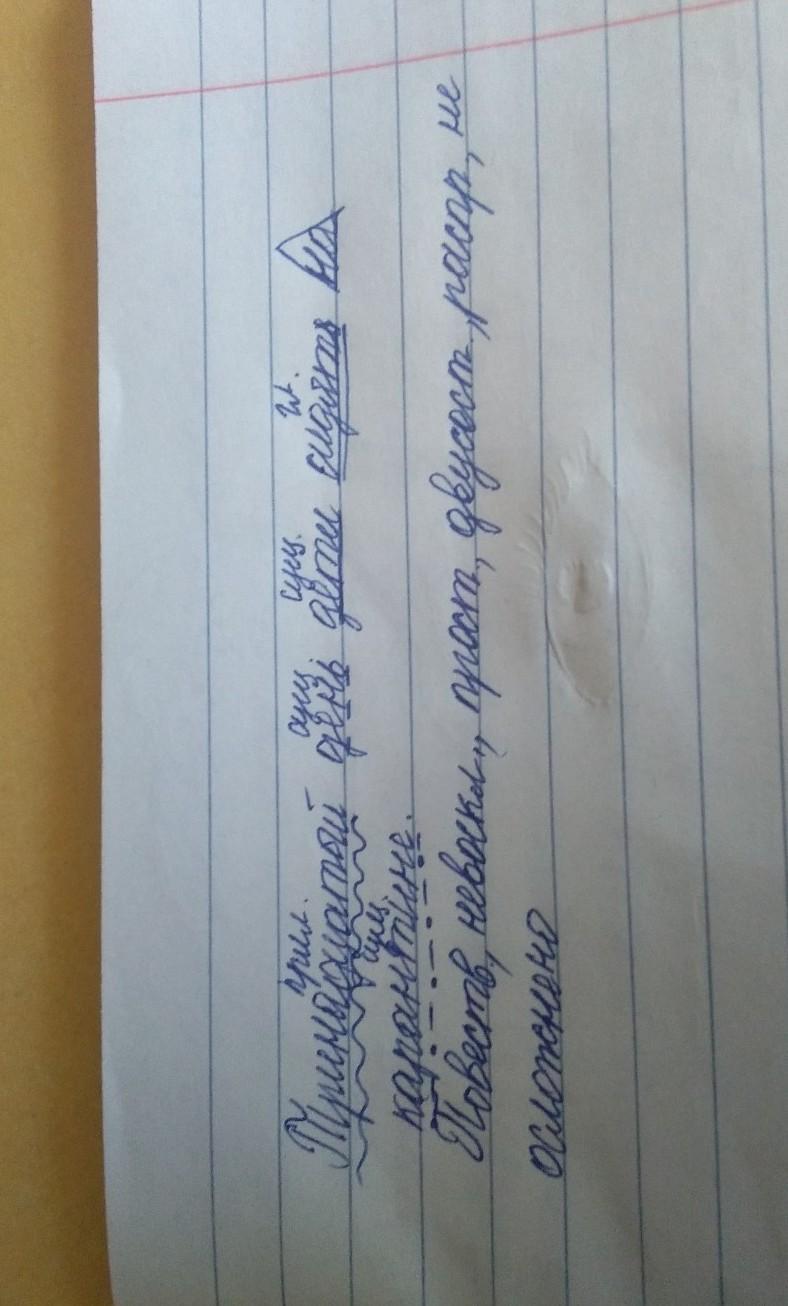 прил. сущ. сущ. гл.
Тринадцатый день дети сидят на
сущ.
карантине.
Повеств, невоскл., прост, двусост, распр, не
осложнено